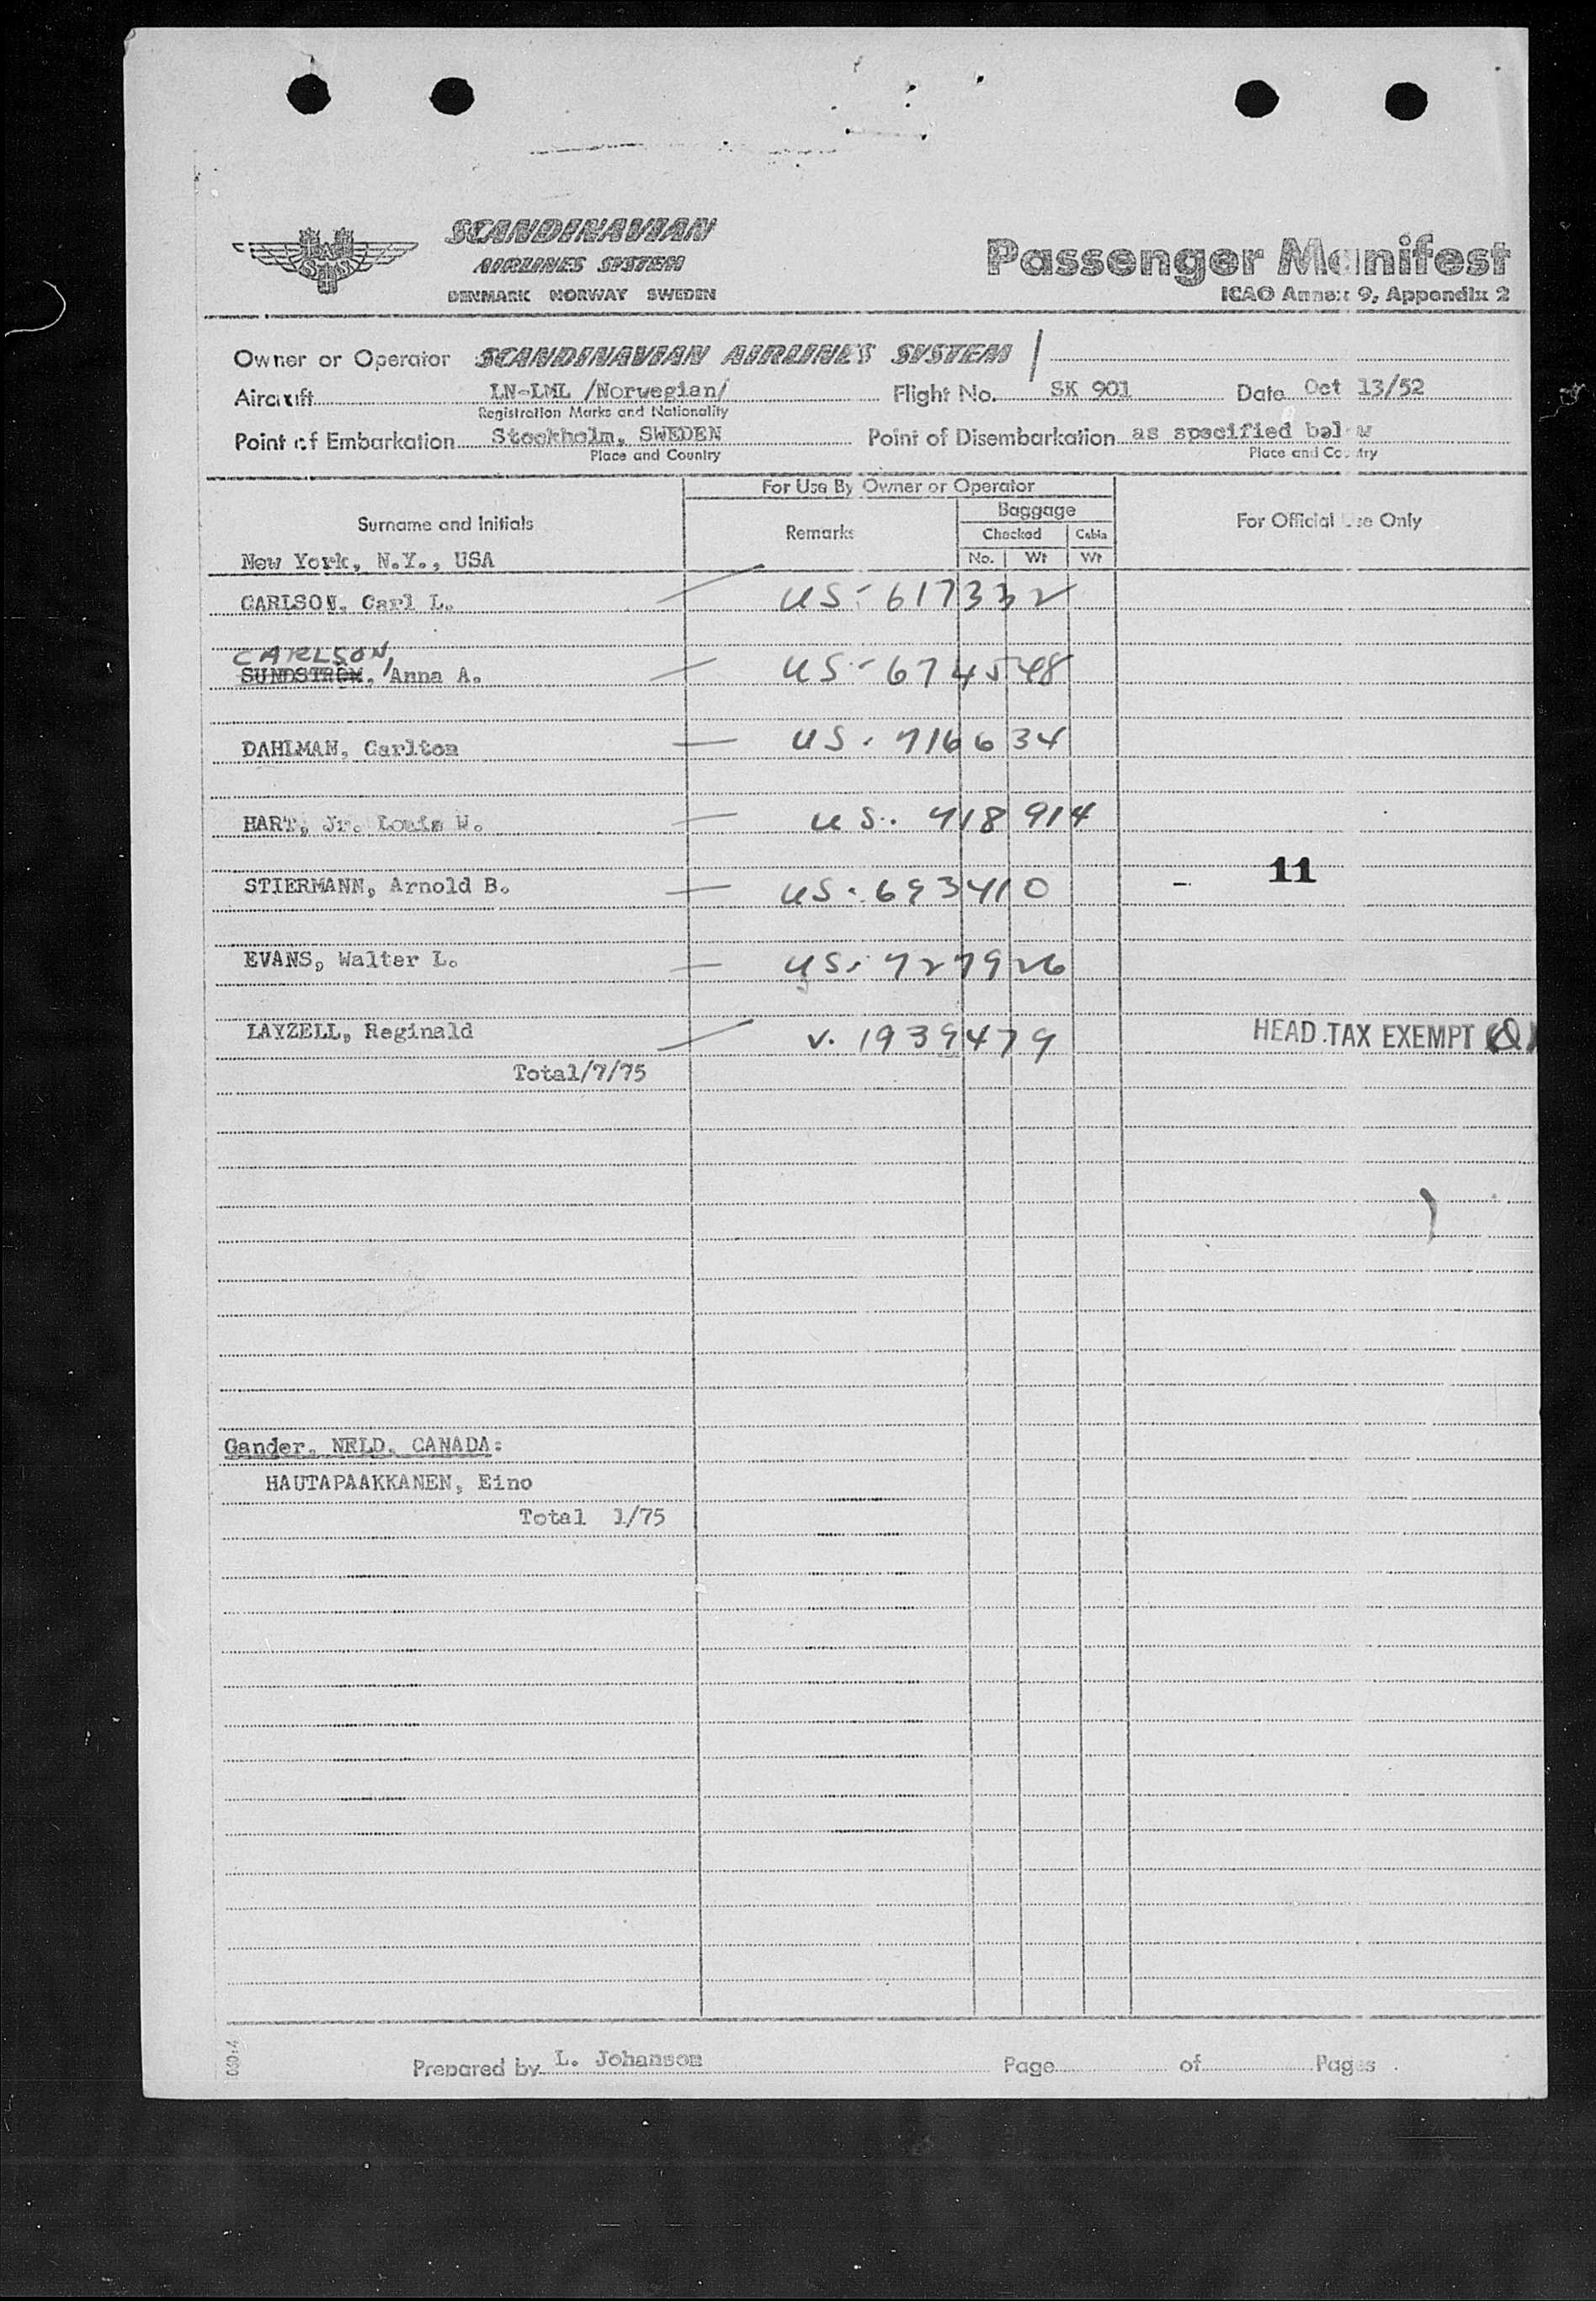 SCANDINAVIAN
AIRLINES SYSTEM
DENMARK NORWAY SWEDEN
Passenger Manifest
ICAO Annex 9, Appendix 2
Owner or Operator SCANDINAVIAN AIRLINES SYSTEM
Aircraft LN-LML /Norwegian/ Flight No. SK 901 Date Oct 13/52
Registration Marks and Nationality
Point of Embarkation Stockholm, SWEDEN Point of Disembarkation as specified below
Place and Country Place and Country
For Use By Owner or Operator
Surname and Initials Remarks Baggage For Official Use Only
Checked Cabin
No. Wt Wt
New York, N.Y., USA
CARLSON, Carl L. US- 617332
CARLSON,
SUNDSTROM, Anna A. US- 674548
DAHLMAN, Carlton US. 716634
HART, Jr. Louis W. US. 718914
11
STIERMANN, Arnold B. US. 693410
EVANS, Walter L. US. 727926
LAYZELL, Reginald V. 1939479 HEAD TAX EXEMPT
Total/7/75
Gander, NFLD, CANADA:
HAUTAPAAKKANEN, Eino
Total 1/75
Prepared by L. Johanson Page of Pages